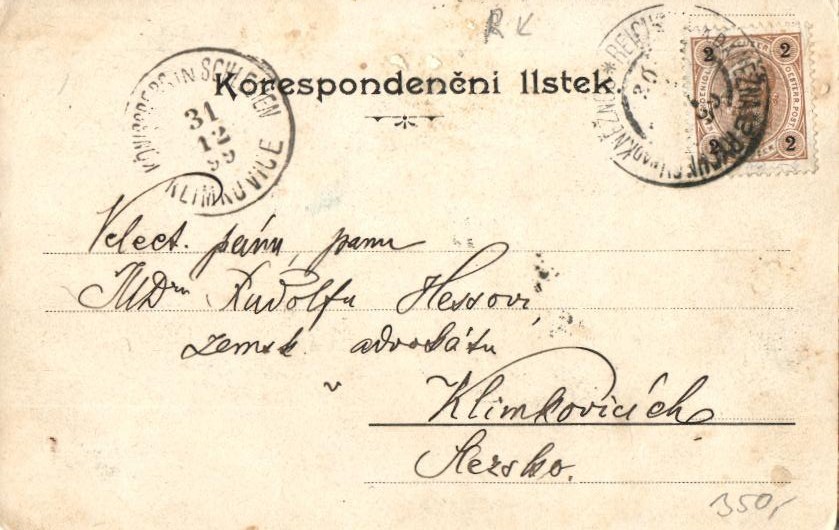 RK
Korespondenční lístek.
KÖNIGSBERG IN SCHLESIEN
31
12
99
KLIMKOVICE
2 2
2 2
Velect. pánu, panu
JUDru Rudolfu Hessovi,
zemsk. advokátu
v Klimkovicích
Slezsko.
350,-